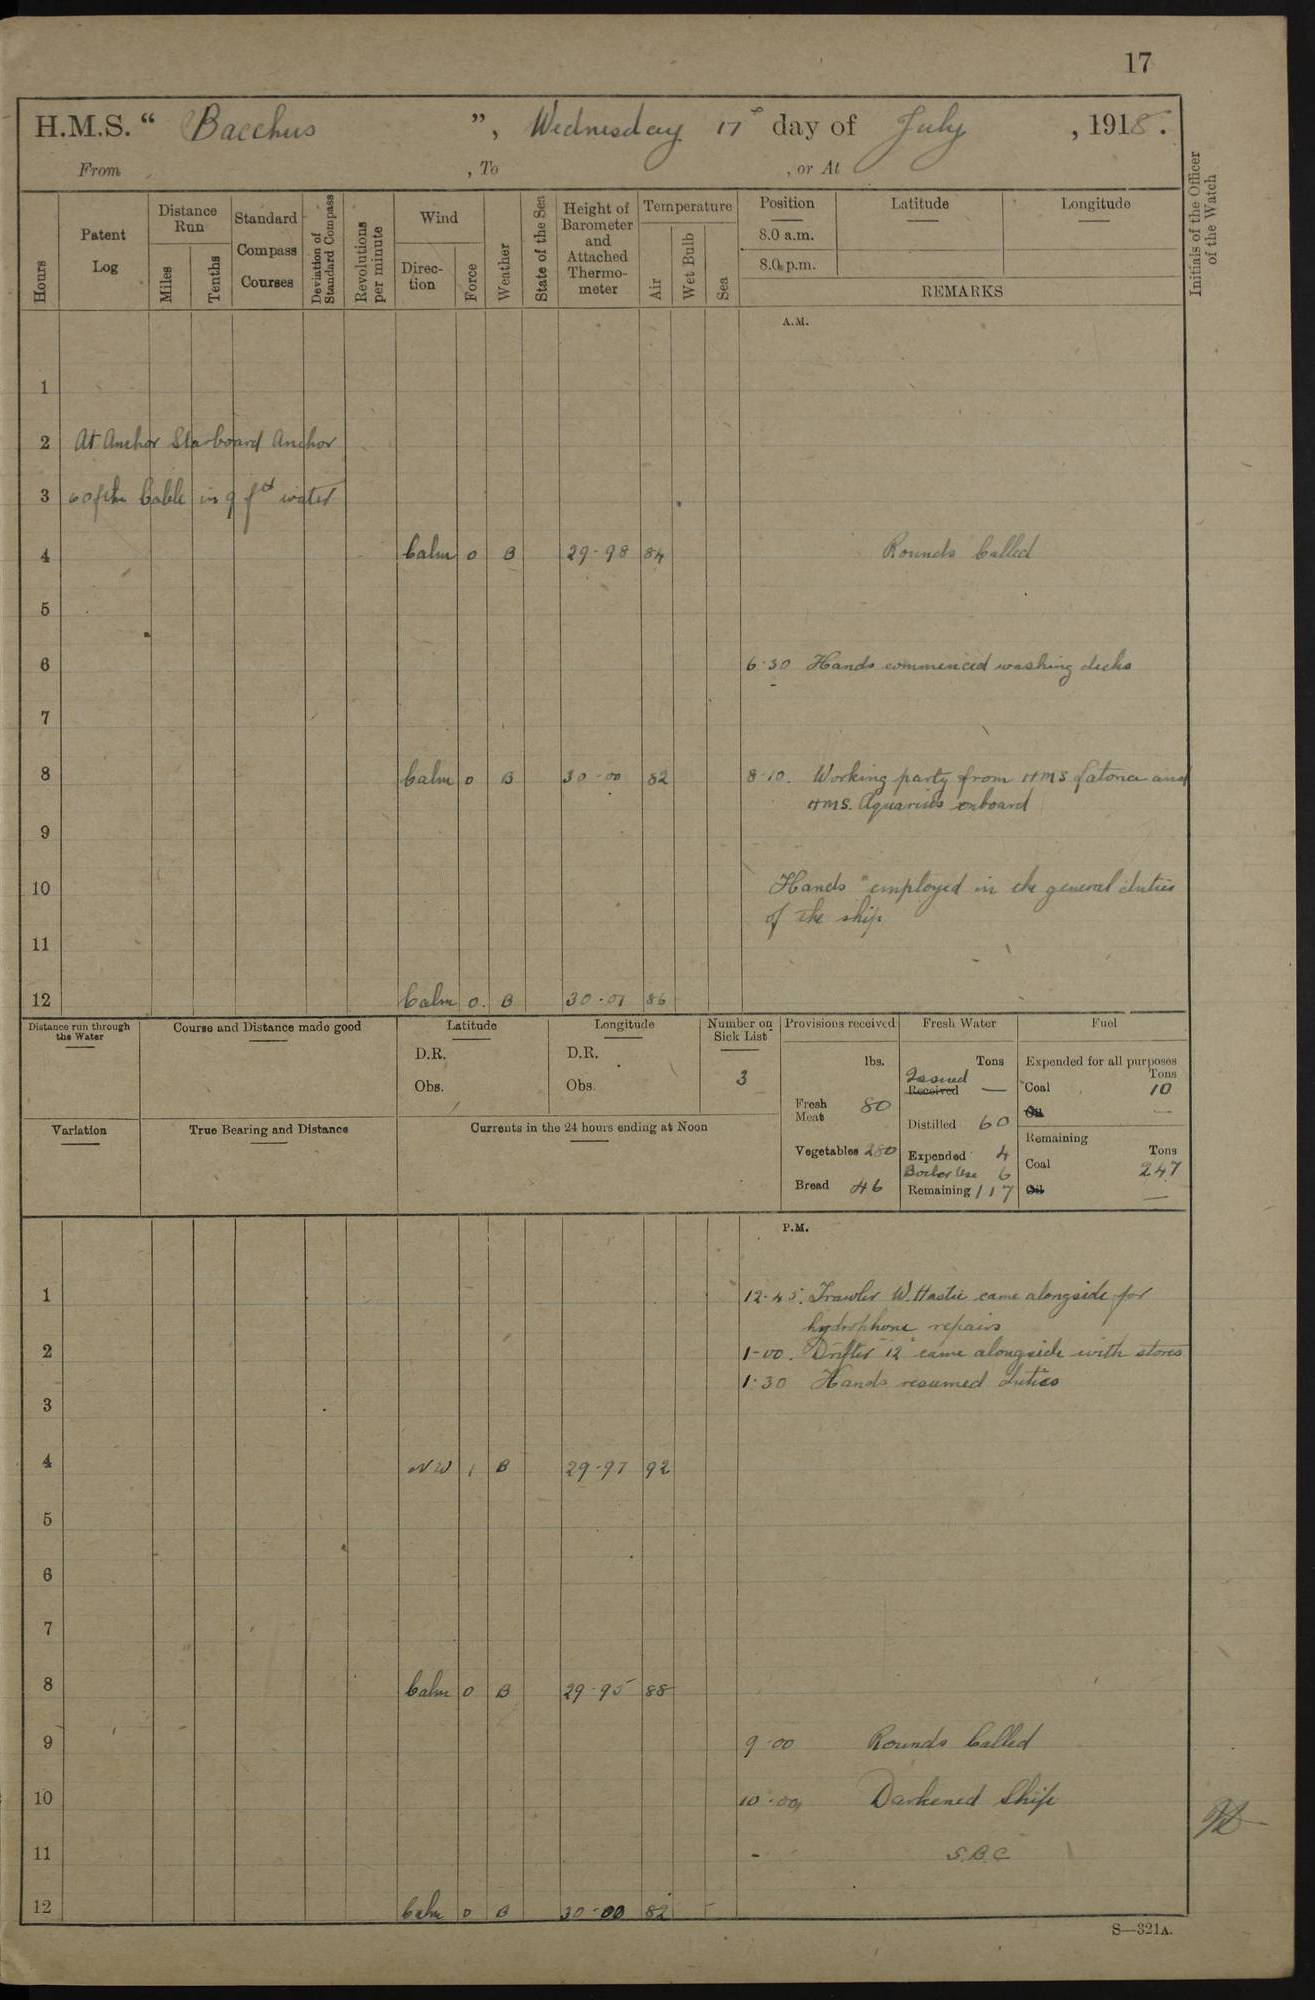 17
H.M.S. " Bacchus ", Wednesday 17th day of July , 1918.
From , To , or At
Hours
Patent
Log
Distance
Run
Miles
Tenths
Standard
Compass
Courses
Deviation of
Standard Compass
Revolutions
per minute
Wind
Direc-
tion
Force
Weather
State of the Sea
Height of
Barometer
and
Attached
Thermo-
meter
Temperature
Air
Wet Bulb
Sea
Position
8.0 a.m.
8.0 p.m.
Latitude
Longitude
REMARKS
Initials of the Officer
of the Watch
A.M.
1
2 At Anchor Starboard Anchor
3 60 fthm Cable in 9 water
4 Calm 0 B 29-98 84 Rounds Called
5
6 6-30 Hands commenced washing decks
7
8 Calm 0 B 30-00 82 8-10. Working party from HMS Latona and
HMS. Aquarius onboard
9
10 Hands employed in the general duties
of the ship
11
12 Calm 0. B 30-01 86
Distance run through
the Water
Course and Distance made good
Latitude
D.R.
Obs.
Longitude
D.R.
Obs.
Number on
Sick List
3
Provisions received
lbs.
Fresh
Meat 80
Vegetables 280
Bread 46
Fresh Water
Tons
Issued
Received —
Distilled 60
Expended 4
Boiler Use 6
Remaining 117
Fuel
Expended for all purposes
Tons
Coal 10
Oil —
Remaining
Tons
Coal 247
Oil —
Variation
True Bearing and Distance
Currents in the 24 hours ending at Noon
P.M.
1 12-45. Trawler W. Hastie came alongside for
hydrophone repairs
2 1-00. Drifter "12" came alongside with stores
1-30 Hands resumed duties
3
4 NW 1 B 29-97 92
5
6
7
8 Calm 0 B 29-95 88
9 9-00 Rounds Called
10 10-00 Darkened Ship
11 S.B.C
12 Calm 0 B 30-00 82
S—321A.